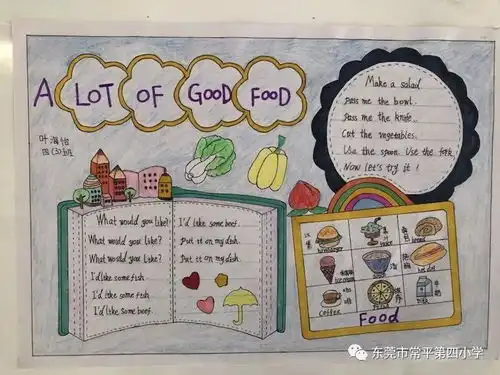 A LOT OF GOOD FOOD
叶海怡
四(3)班
Make a salad
Pass me the bowl.
Pass me the knife.
Cut the vegetables.
Use the spoon. Use the fork.
Now let's try it!
What would you like?
What would you like?
What would you like?
I'd like some fish.
I'd like some fish.
I'd like some beef.
I'd like some beef.
Put it on my dish.
Put it on my dish.
汉堡
hamburger
果汁
juice
面包
bread
ice cream
热狗
hot dog
coffee
牛奶
milk
Food
东莞市常平第四小学